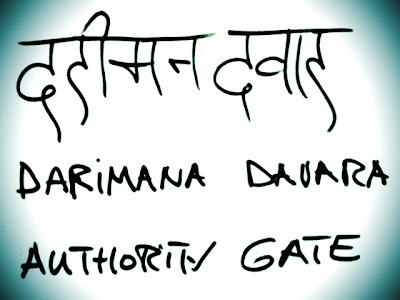 दरीमन दवार
DARIMANA DAVARA
AUTHORITY GATE